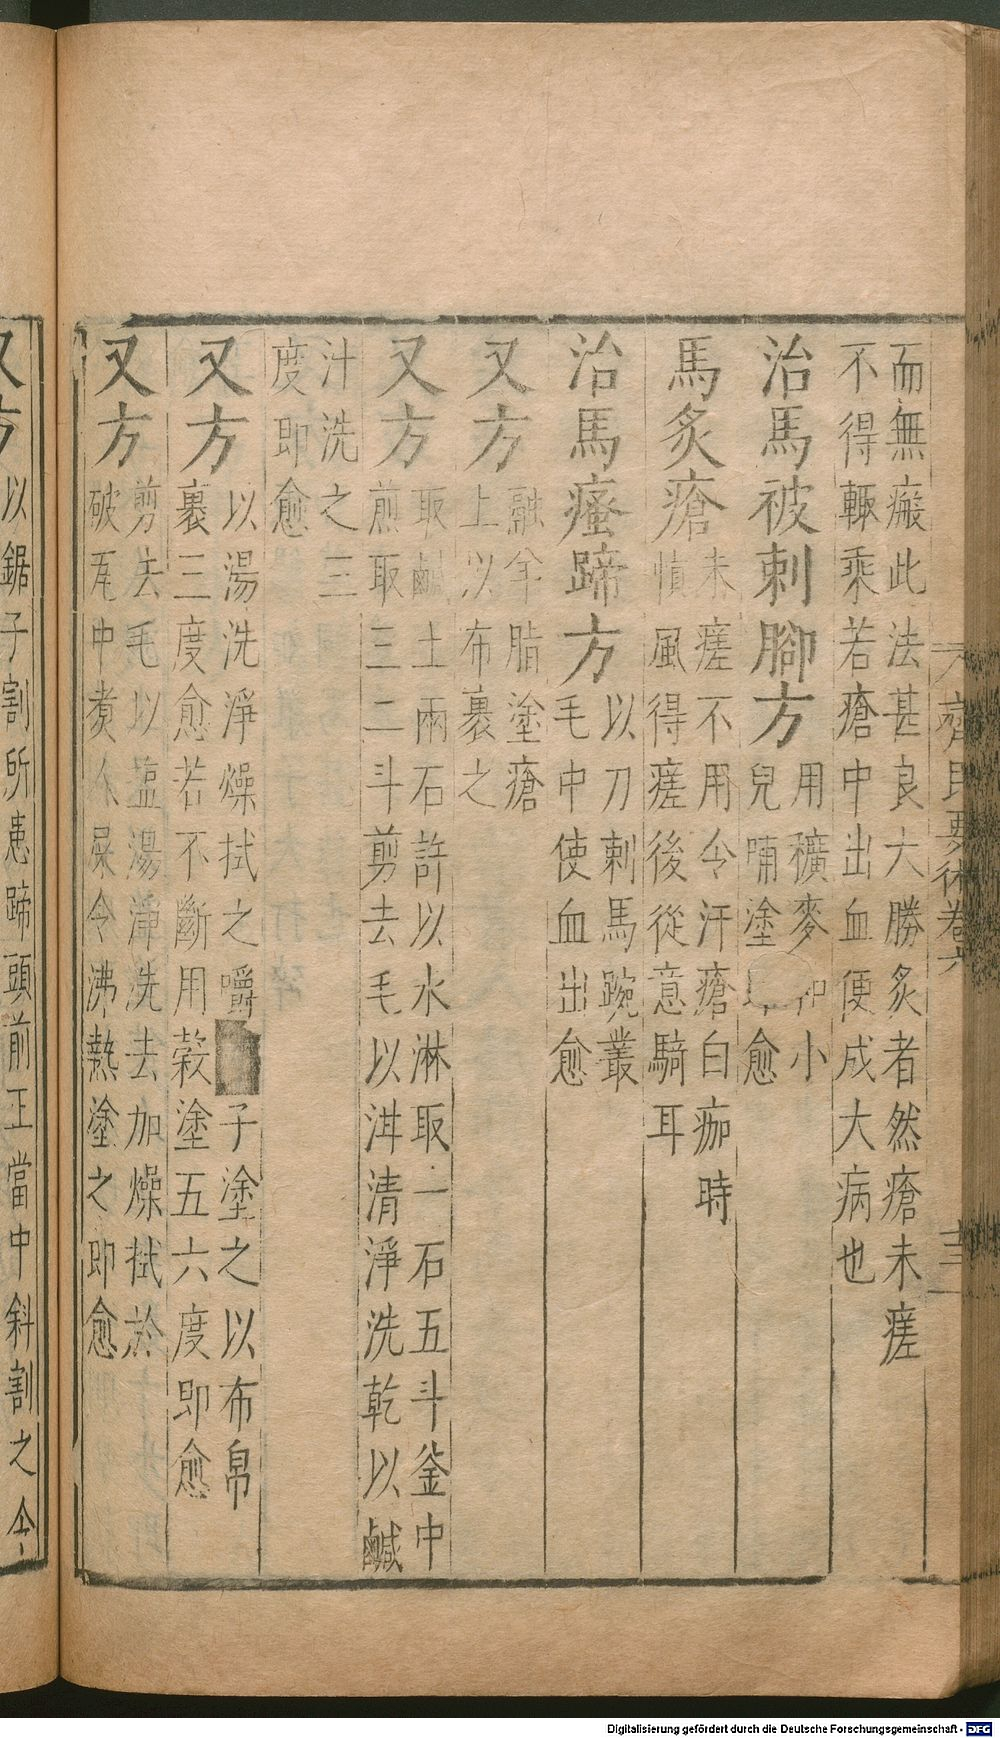 而無瘢此法甚良大勝炙者然瘡未瘥
不得輙乘若瘡中出血便成大病也
治馬被刺腳方
用穬麥和小
兒哺塗即愈
馬炙瘡
未瘥不用令汗瘡白痂時
慎風得瘥後從意騎耳
治馬瘙蹄方
以刀刺馬踠叢
毛中使血出愈
又方
融羊脂塗瘡
上以布裹之
又方
取鹹土兩石許以水淋取一石五斗釜中
煎取三二斗剪去毛以泔清淨洗乾以鹹
汁洗之三
度即愈
又方
以湯洗淨燥拭之嚼子塗之以布帛
裹三度愈若不斷用穀塗五六度即愈
又方
剪去毛以塩湯淨洗去加燥拭於
破瓦中煮人屎令沸熱塗之即愈
齊民要術卷六
十三
又方
以鋸子割所患蹄頭前正當中斜割之令
Digitalisierung gefördert durch die Deutsche Forschungsgemeinschaft - DFG